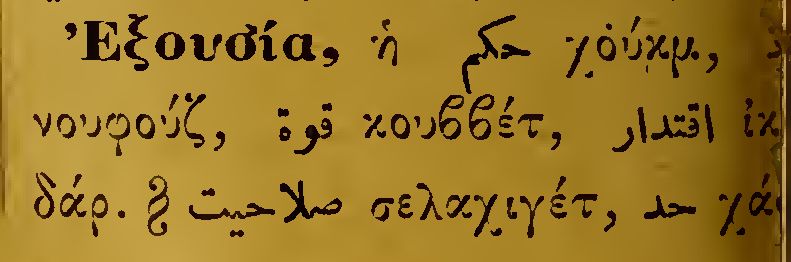 Ἐξουσία, ἡ حكم χούκμ,
νουφούζ, قوة κουββέτ, اقتدار ἰκ
δάρ. § صلاحيت σελαχιγέτ, حد χά